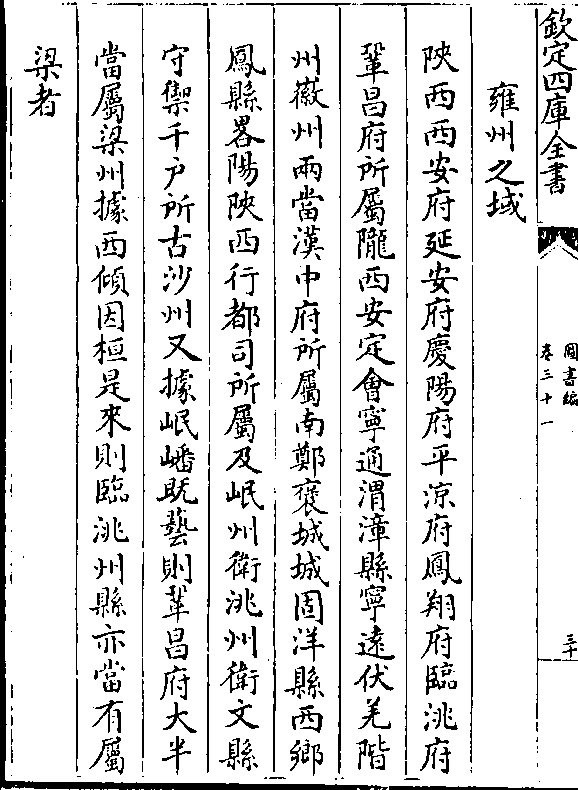 欽定四庫全書
圖書編
卷三十一
三十
雍州之域
陜西西安府延安府慶陽府平涼府鳳翔府臨洮府
鞏昌府所屬隴西安定會寧通渭漳縣寧遠伏羌階
州徽州兩當漢中府所屬南鄭褒城城固洋縣西鄉
鳳縣畧陽陜西行都司所屬及岷州衛洮州衛文縣
守禦千户所古沙州又據岷嶓既藝則鞏昌府大半
當屬梁州據西傾因桓是來則臨洮州縣亦當有屬
梁者